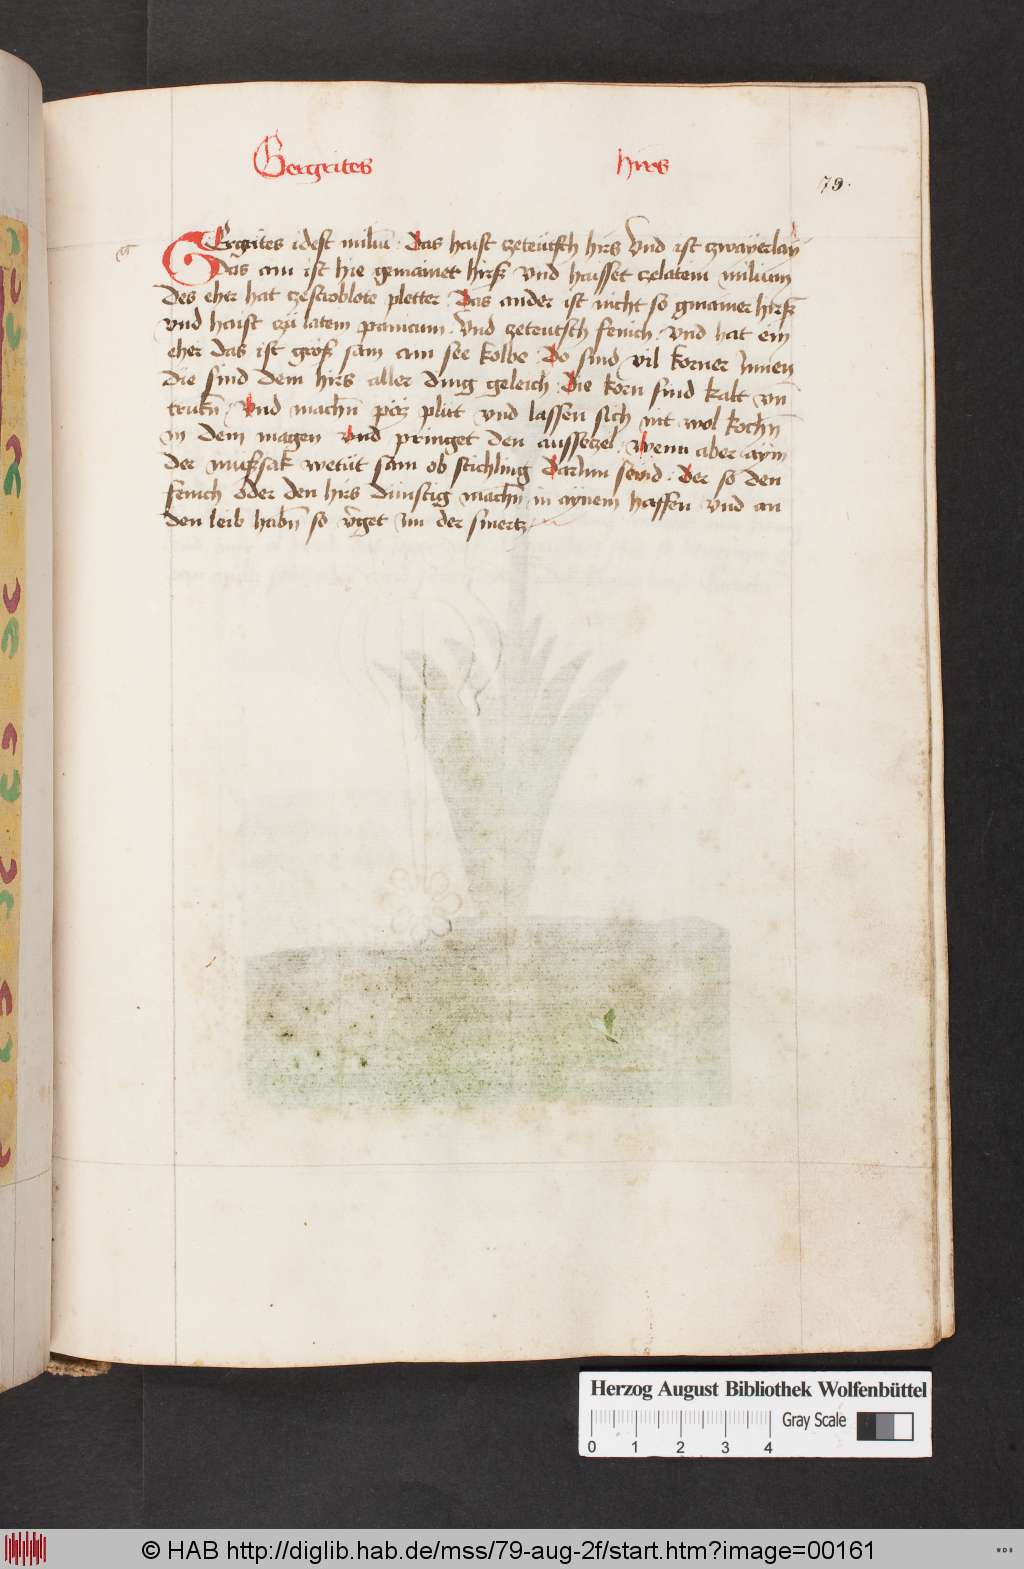 Gergrites hirs
79.
g
GErgrites idest miliū · Das haist czeteütsch hirs Vnd ist czwayerlay
Das ain ist hie gemainet hirß vnd haisset czelatein milium
Des eher hat czeschroblote pletter Das ander ist nicht so gmainer hirß
vnd haist czü latein panicum · Vnd czeteutsch fenich · vnd hat ein
eher das ist groß sam ain see kolbe · Do sind vil korner Jnnen
die sind dem hirs aller ding geleich · Die korn sind kalt vn̄
trukn̄ · Vnd machn̄ pöz plut vnd lassen sich nit wol kochn̄
in dem magen vnd pringet den aussetzel · Wenn aber aym
der mußsak wetüt sam ob stichling darJnn seind · Der so den
fenich oder den hirs dünstig machn̄ in aynem haffen vnd an
den leib habn̄ so v̄get im der smertz
Herzog August Bibliothek Wolfenbüttel
Gray Scale
0 1 2 3 4
© HAB http://diglib.hab.de/mss/79-aug-2f/start.htm?image=00161